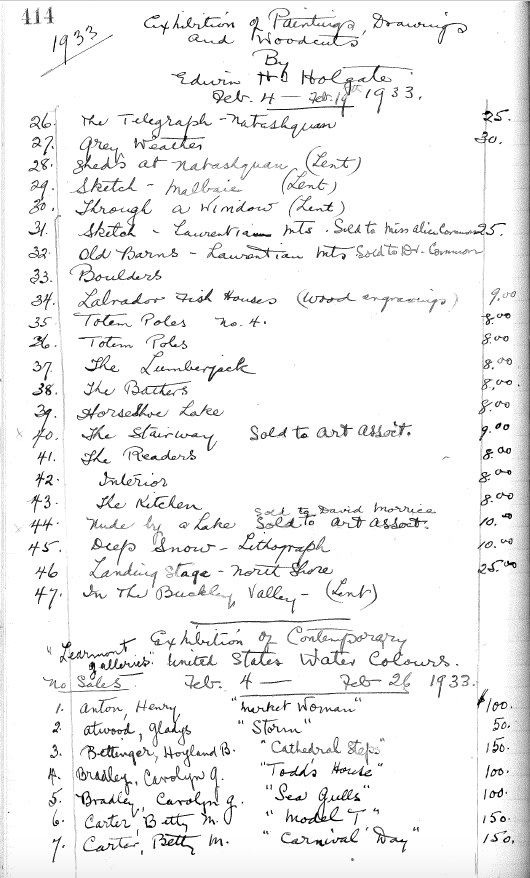 414
1933
Exhibition of Paintings, Drawings
and Woodcuts
By
Edwin H. Holgate
Feb. 4 — Feb. 19th 1933.
26. The Telegraph - Natashquan 25.
27. Grey Weather 30.
28. Sheds at Natashquan (Lent)
29. Sketch - Malbaie (Lent)
30. Through a Window (Lent)
31. Sketch - Laurentian Mts. Sold to Miss Alice Common 25.
32. Old Barns - Laurentian Mts Sold to Dr. Common
33. Boulders
34. Labrador Fish Houses (Wood engravings) 9.00
35 Totem Poles No. 4. 8.00
36. Totem Poles 8.00
37. The Lumberjack 8.00
38. The Bathers 8.00
39. Horseshoe Lake 8.00
x 40. The Stairway Sold to Art Assoct. 9.00
41. The Readers 8.00
42. Interior 8.00
43. The Kitchen 8.00
Sold to David Morrice
44. Nude by a Lake Sold to Art Assoct. 10.00
45. Deep Snow - Lithograph 10.00
46 Landing Stage - North Shore 25.00
47. In The Buckley Valley - (Lent)
Exhibition of Contemporary
"Learmont galleries" United States Water Colours.
No Sales. Feb. 4 — Feb 26 1933.
1. Anton, Henry "Market Woman" $100.
2. Atwood, Gladys "Storm" 50.
3. Bettinger, Hoyland B. "Cathedral Steps" 150.
4. Bradley, Carolyn G. "Todd's House" 100.
5. Bradley, Carolyn G. "Sea Gulls" 100.
6. Carter, Betty M. "Model T" 150.
7. Carter, Betty M. "Carnival Day" 150.